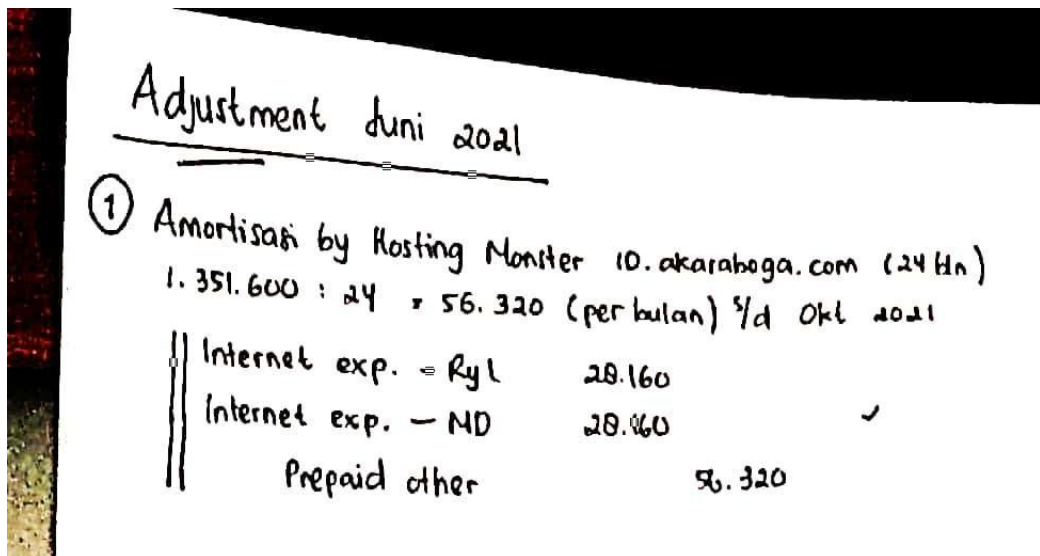 Adjustment Juni 2021
① Amortisasi by Hosting Monster ID.akaraboga.com (24 bln)
1.351.600 : 24 = 56.320 (per bulan) s/d Okt 2021
Internet exp. - Ryl 28.160
Internet exp. - MD 28.160
Prepaid other 56.320